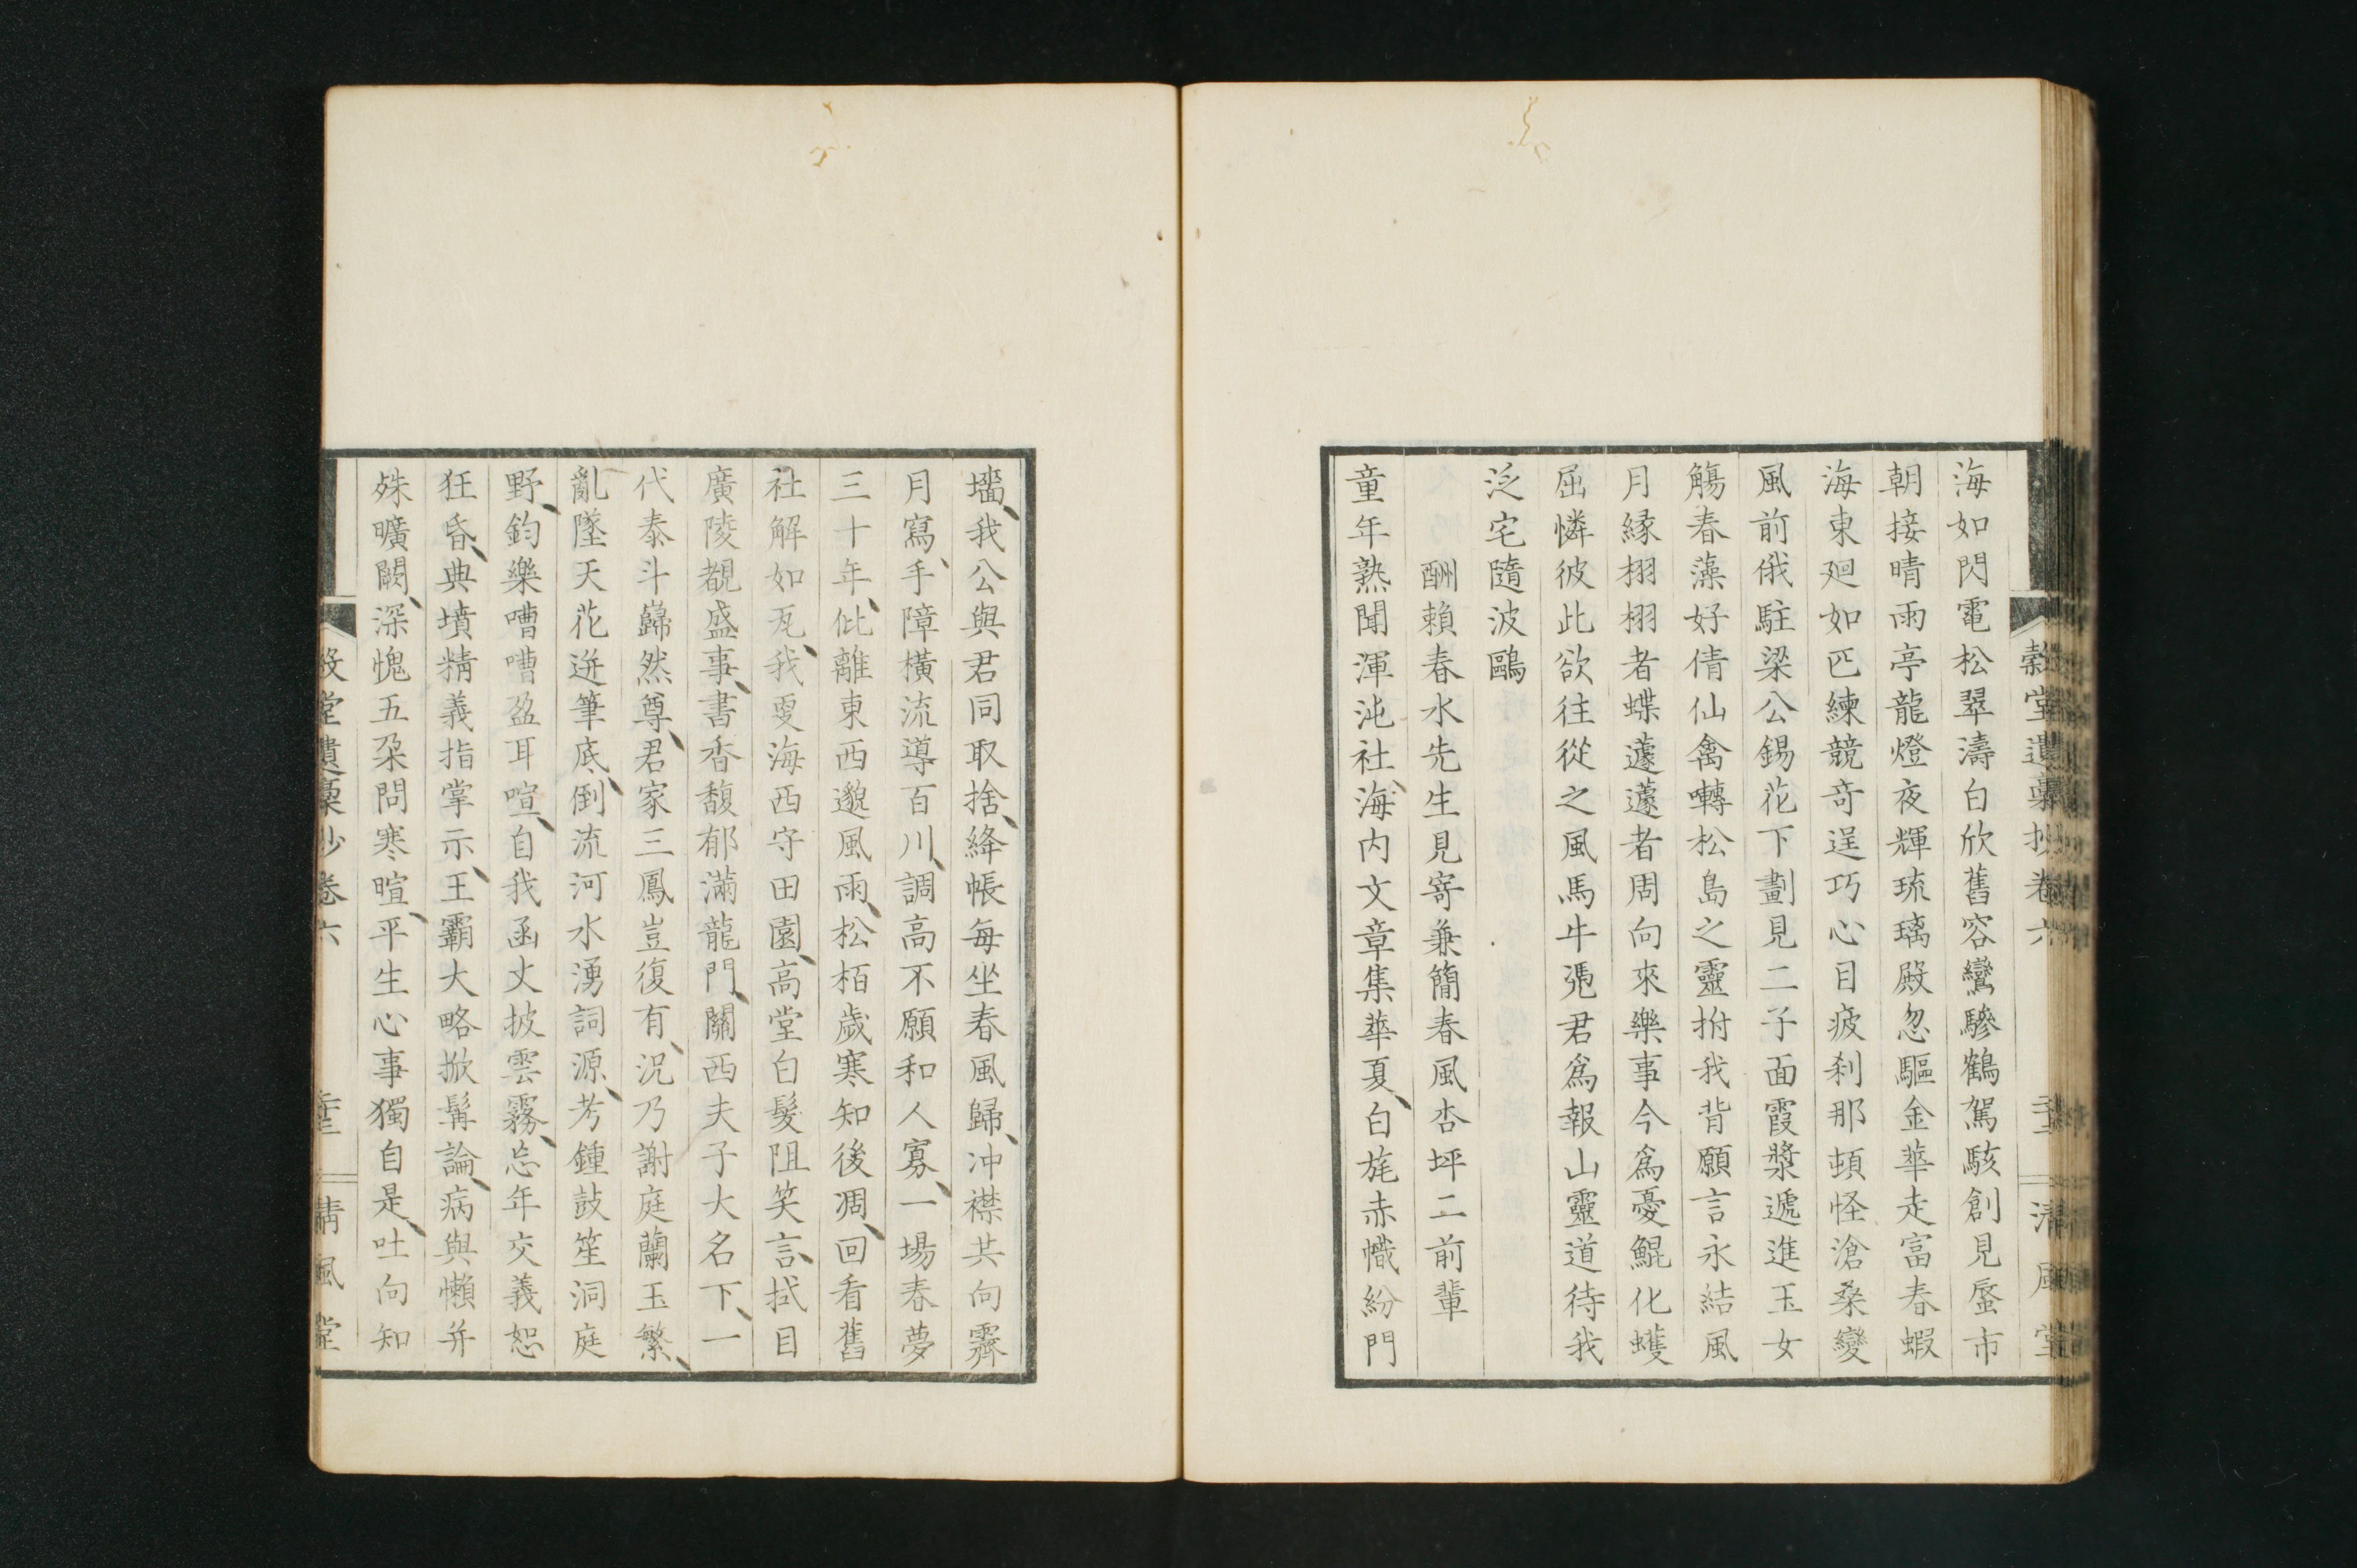 穀堂遺稾抄卷六
清風堂
海如閃電松翠濤白欣舊容鸞驂鶴駕駭創見蜃市
朝接晴雨亭龍燈夜輝琉璃殿忽驅金華走富春蝦
海東廻如匹練競奇逞巧心目疲刹那頓怪滄桑變
風前俄駐梁公錫花下劃見二子面霞漿遞進玉女
觴春藻好倩仙禽囀松島之靈拊我背願言永結風
月緣栩栩者蝶蘧蘧者周向來樂事今爲憂鯤化蠖
屈憐彼此欲往從之風馬牛馮君爲報山靈道待我
泛宅隨波鷗
酬賴春水先生見寄兼簡春風杏坪二前輩
童年熟聞渾沌社、海內文章集華夏、白旄赤幟紛門
墻、我公與君同取捨、絳帳每坐春風歸、冲襟共向霽
月寫、手障橫流導百川、調高不願和人寡、一場春夢
三十年、仳離東西邈風雨、松栢歲寒知後凋、回看舊
社解如瓦、我更海西守田園、高堂白髮阻笑言、拭目
廣陵覩盛事、書香馥郁滿龍門、關西夫子大名下、一
代泰斗巋然尊、君家三鳳豈復有、況乃謝庭蘭玉繁、
亂墜天花迸筆底、倒流河水湧詞源、考鍾鼓笙洞庭
野、鈞樂嘈嘈盈耳喧、自我函丈披雲霧、忘年交義恕
狂昏、典墳精義指掌示、王霸大略掀髯論、病與懶并
殊曠闕、深愧五朶問寒暄、平生心事獨自是、吐向知
穀堂遺稾抄卷六
清風堂